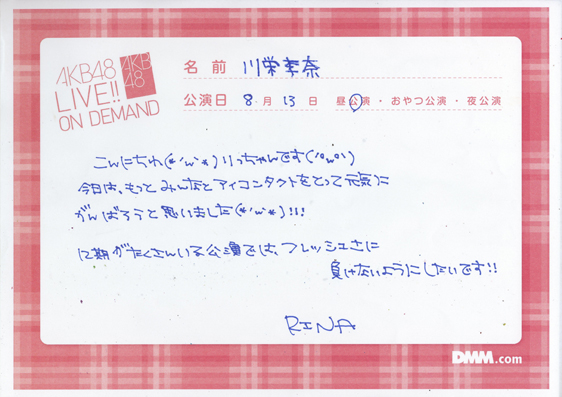 AKB48
LIVE!!
ON DEMAND
AKB
48
名前 川栄李奈
公演日 8月13日 昼公演・おやつ公演・夜公演
こんにちわ(*'ω'*)りっちゃんです('ω')
今日は、もっとみんなとアイコンタクトをとって元気に
がんばろうと思いました(*'ω'*)!!!
12期がたくさんいる公演では、フレッシュさに
負けないようにしたいです!!
RINA
DMM.com